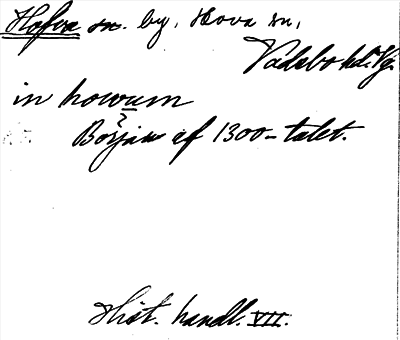 Hofva sn. by, Hova sn,
Vadsbo hd. Vg.
in howum
?
Början af 1300-talet.
Hist. handl. VII.